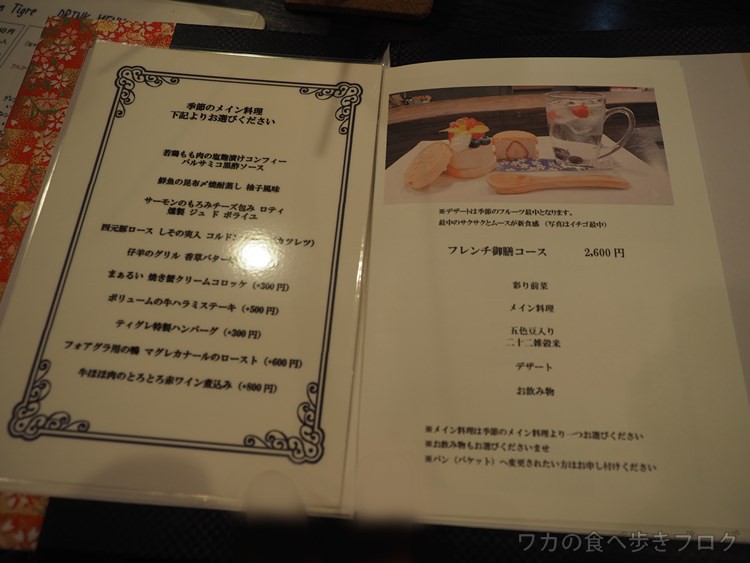 Tigre DRINK MENU
季節のメイン料理
下記よりお選びください
若鶏もも肉の塩麹漬けコンフィー
バルサミコ黒酢ソース
鮮魚の昆布〆焼酎蒸し 柚子風味
サーモンのもろみチーズ包み ロティ
燻製 ジュ ド ボライユ
四元豚ロース しその実入 コルドン カツレツ)
仔羊のグリル 香草バター
まぁるい 焼き蟹クリームコロッケ (+300円)
ボリュームの牛ハラミステーキ (+500円)
ティグレ特製ハンバーグ (+300円)
フォアグラ用の鴨 マグレカナールのロースト (+600円)
牛ほほ肉のとろとろ赤ワイン煮込み (+800円)
※デザートは季節のフルーツ最中となります。
最中のサクサクとムースが新食感 (写真はイチゴ最中)
フレンチ御膳コース 2,600円
彩り前菜
メイン料理
五色豆入り
二十二雑穀米
デザート
お飲み物
※メイン料理は季節のメイン料理より一つお選びください
※お飲み物もお選びくださいませ
※パン（バケット）へ変更されたい方はお申し付けください
ワカの食べ歩きブログ